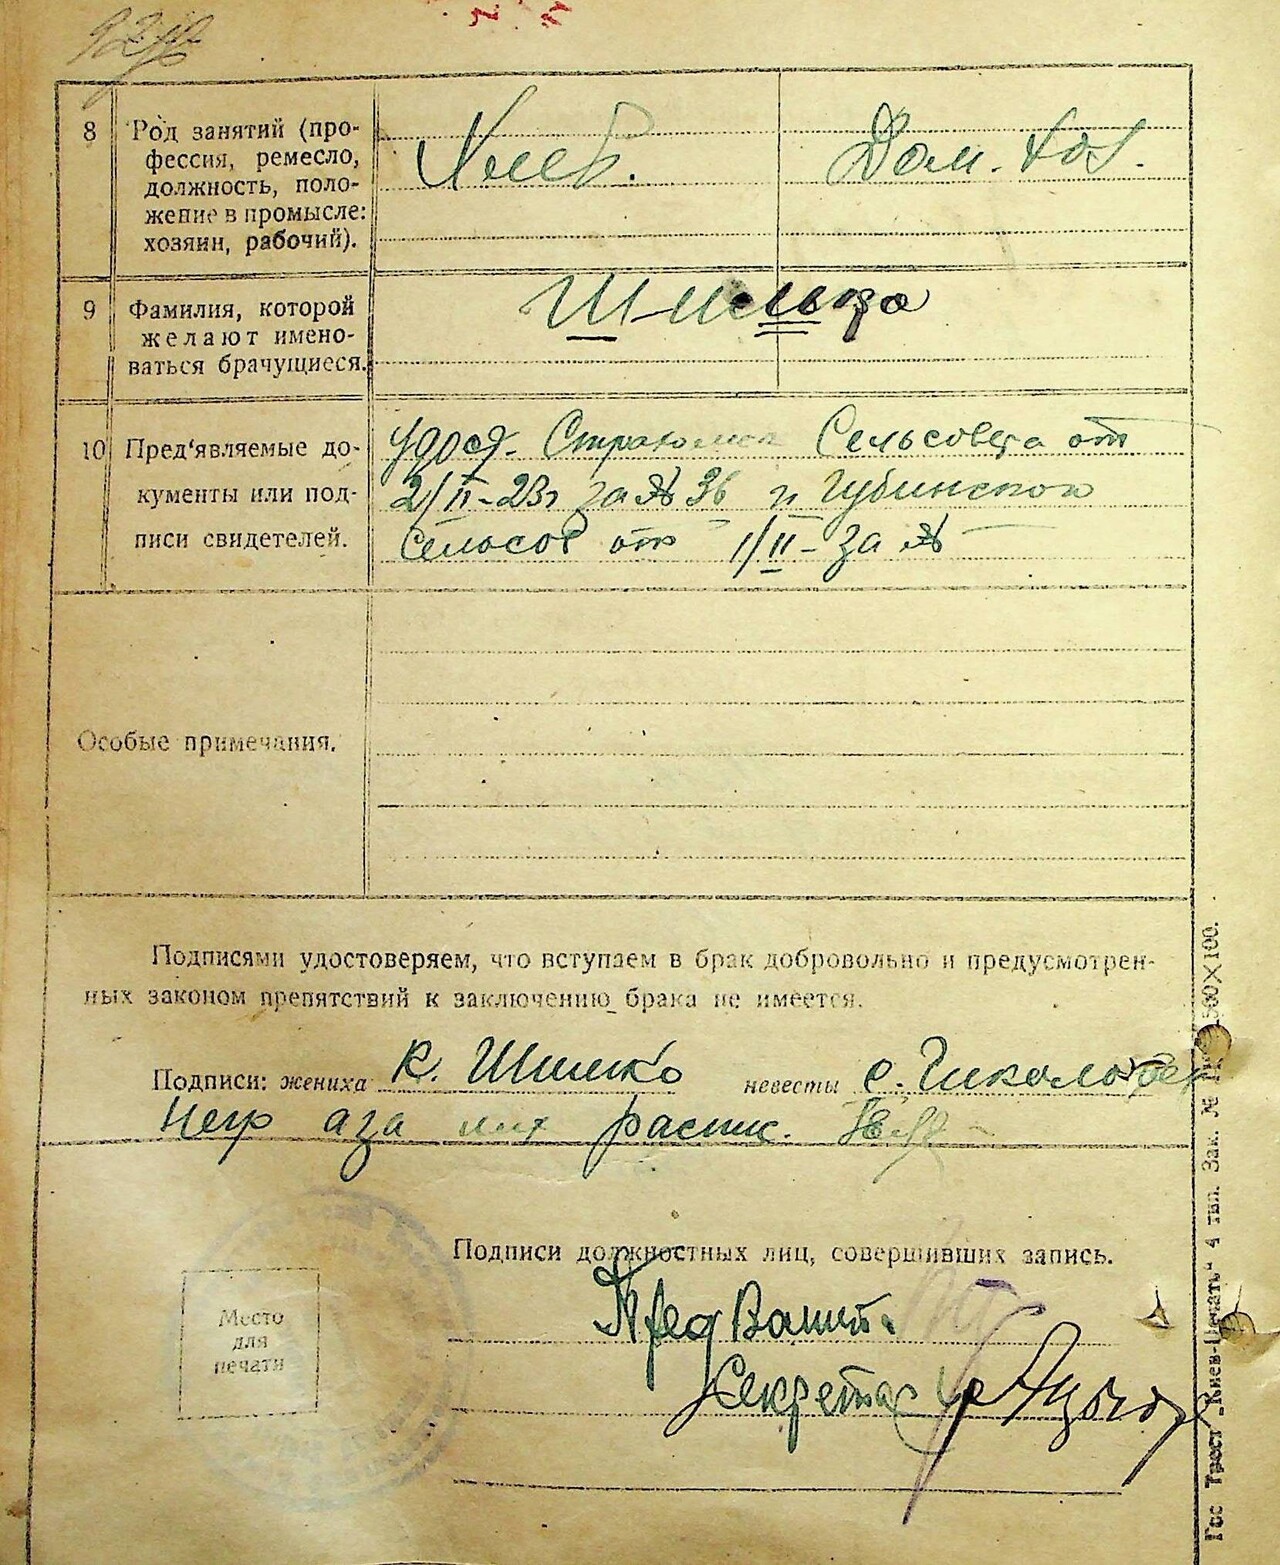 8 Род занятий (про-
фессия, ремесло,
должность, поло-
жение в промысле:
хозяин, рабочий).
Хлеб. Дом. хоз.
9 Фамилия, которой
желают имено-
ваться брачущиеся.
10 Пред'являемые до-
кументы или под-
писи свидетелей.
удост. Сельсовета от
2/II-23г за № 36 и Губинского
Сельсов от 1/II- за №
Особые примечания.
Подписями удостоверяем, что вступаем в брак добровольно и предусмотрен-
ных законом препятствий к заключению брака не имеется.
Подписи: жениха К. Шилко невесты
негр аза них распис.
Подписи должностных лиц, совершивших запись.
Место
для
печати
Пред
Секретар
Гос Трест „Киев-Печать“ 4 тип. Зак. № 500×100.